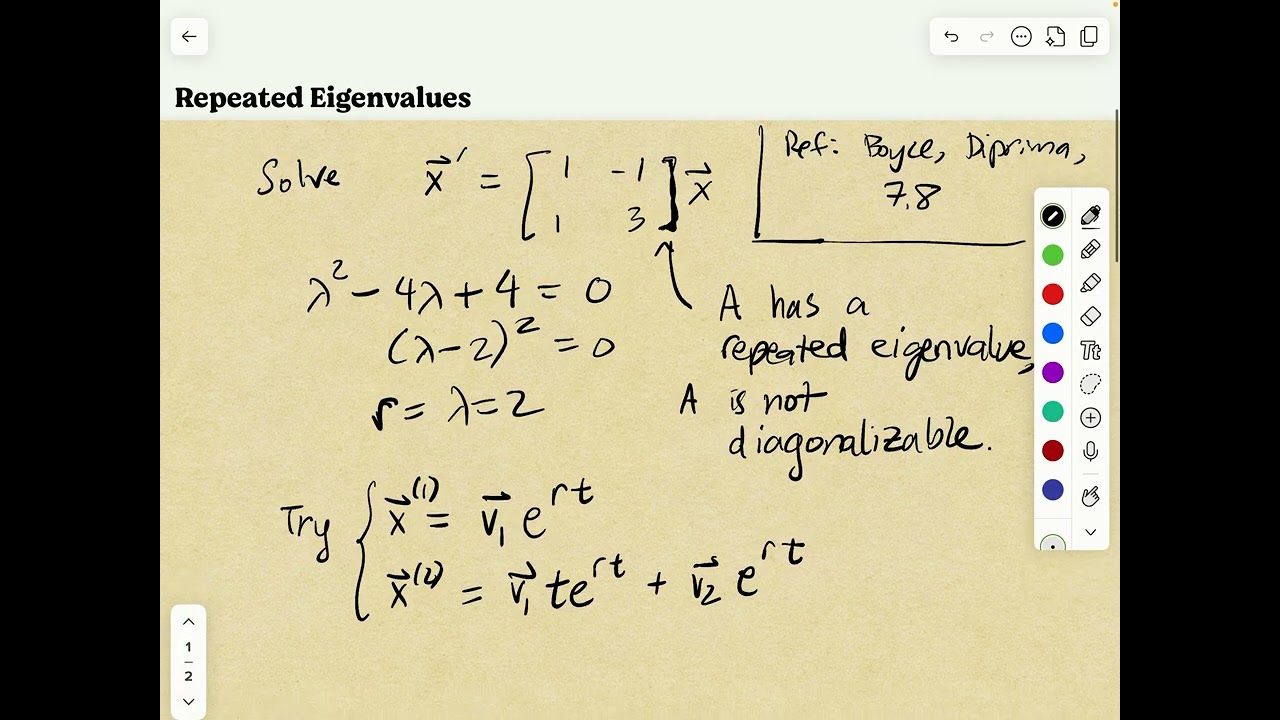 Repeated Eigenvalues
Solve x⃗' = [1 -1
1 3] x⃗
Ref: Boyce, Diprima,
7.8
λ² - 4λ + 4 = 0
(λ-2)² = 0
r = λ = 2
A has a
repeated eigenvalue,
A is not
diagonalizable.
Try { x⃗⁽¹⁾ = v⃗₁ e^{rt}
x⃗⁽²⁾ = v⃗₁ t e^{rt} + v⃗₂ e^{rt}
Tt
1
2